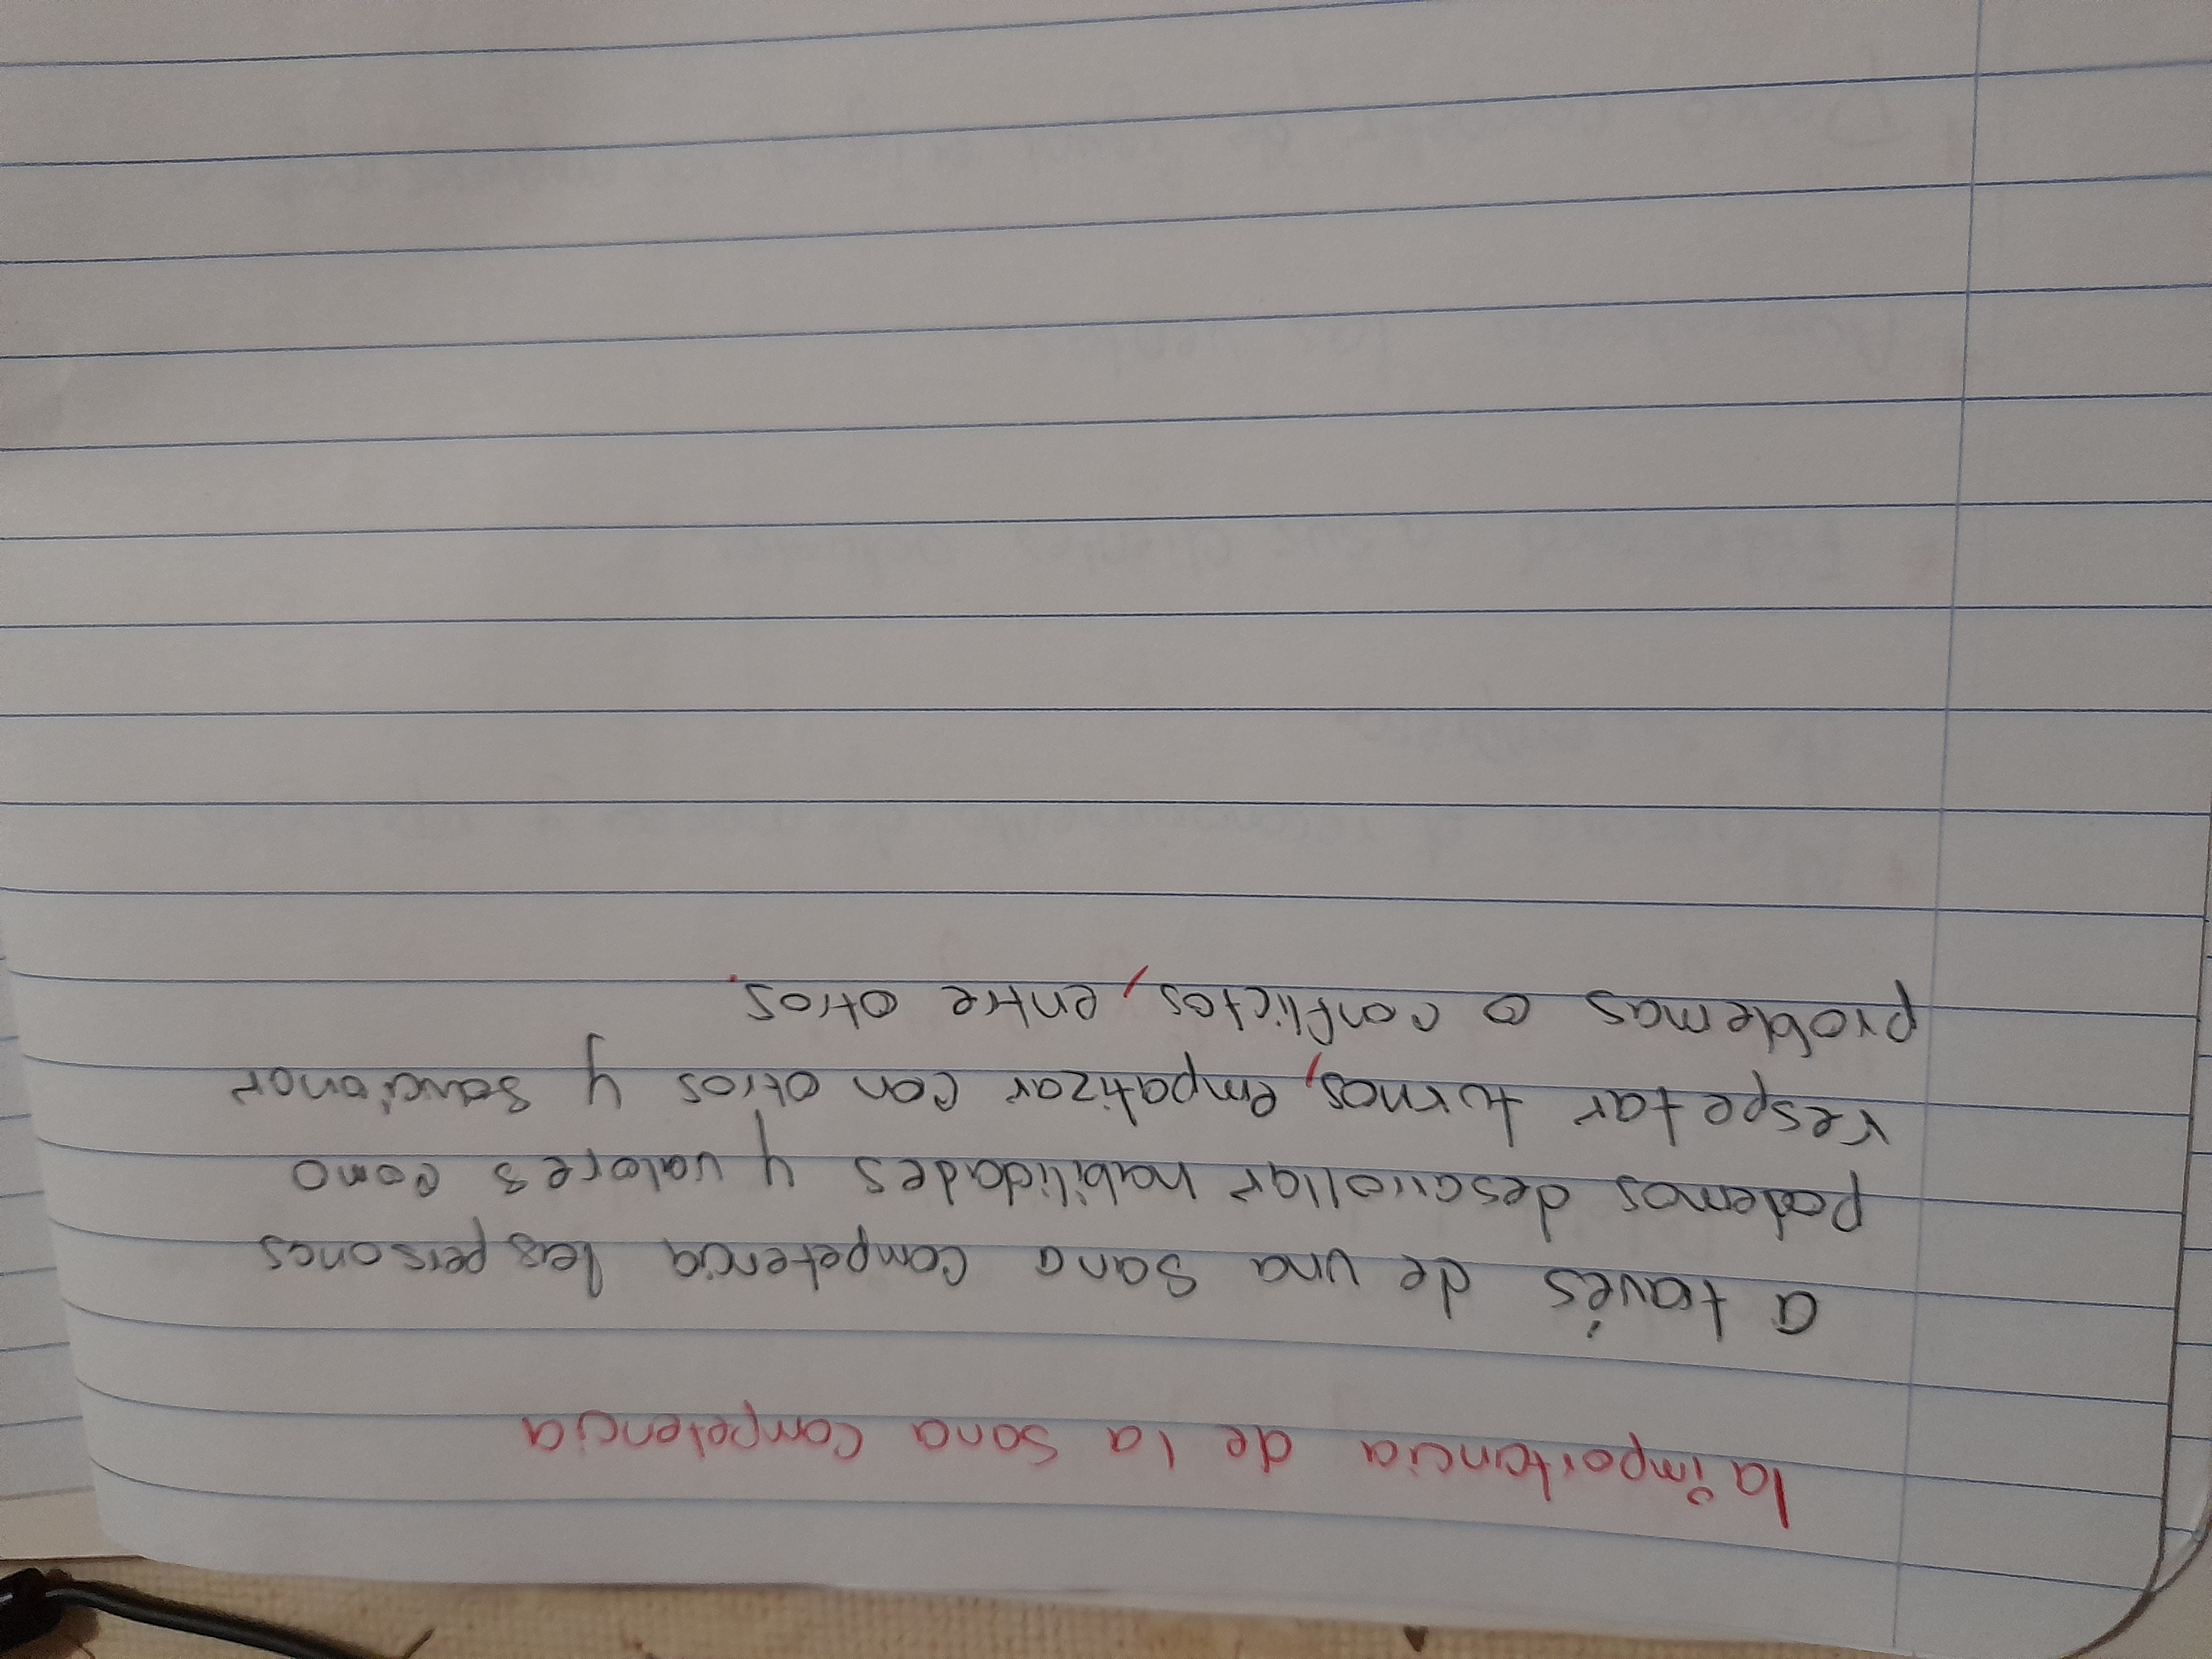 la importancia de la sana competencia
a través de una sana competencia las personas
podemos desarrollar habilidades y valores como
respetar turnos, empatizar con otros y sancionar
problemas o conflictos, entre otros.